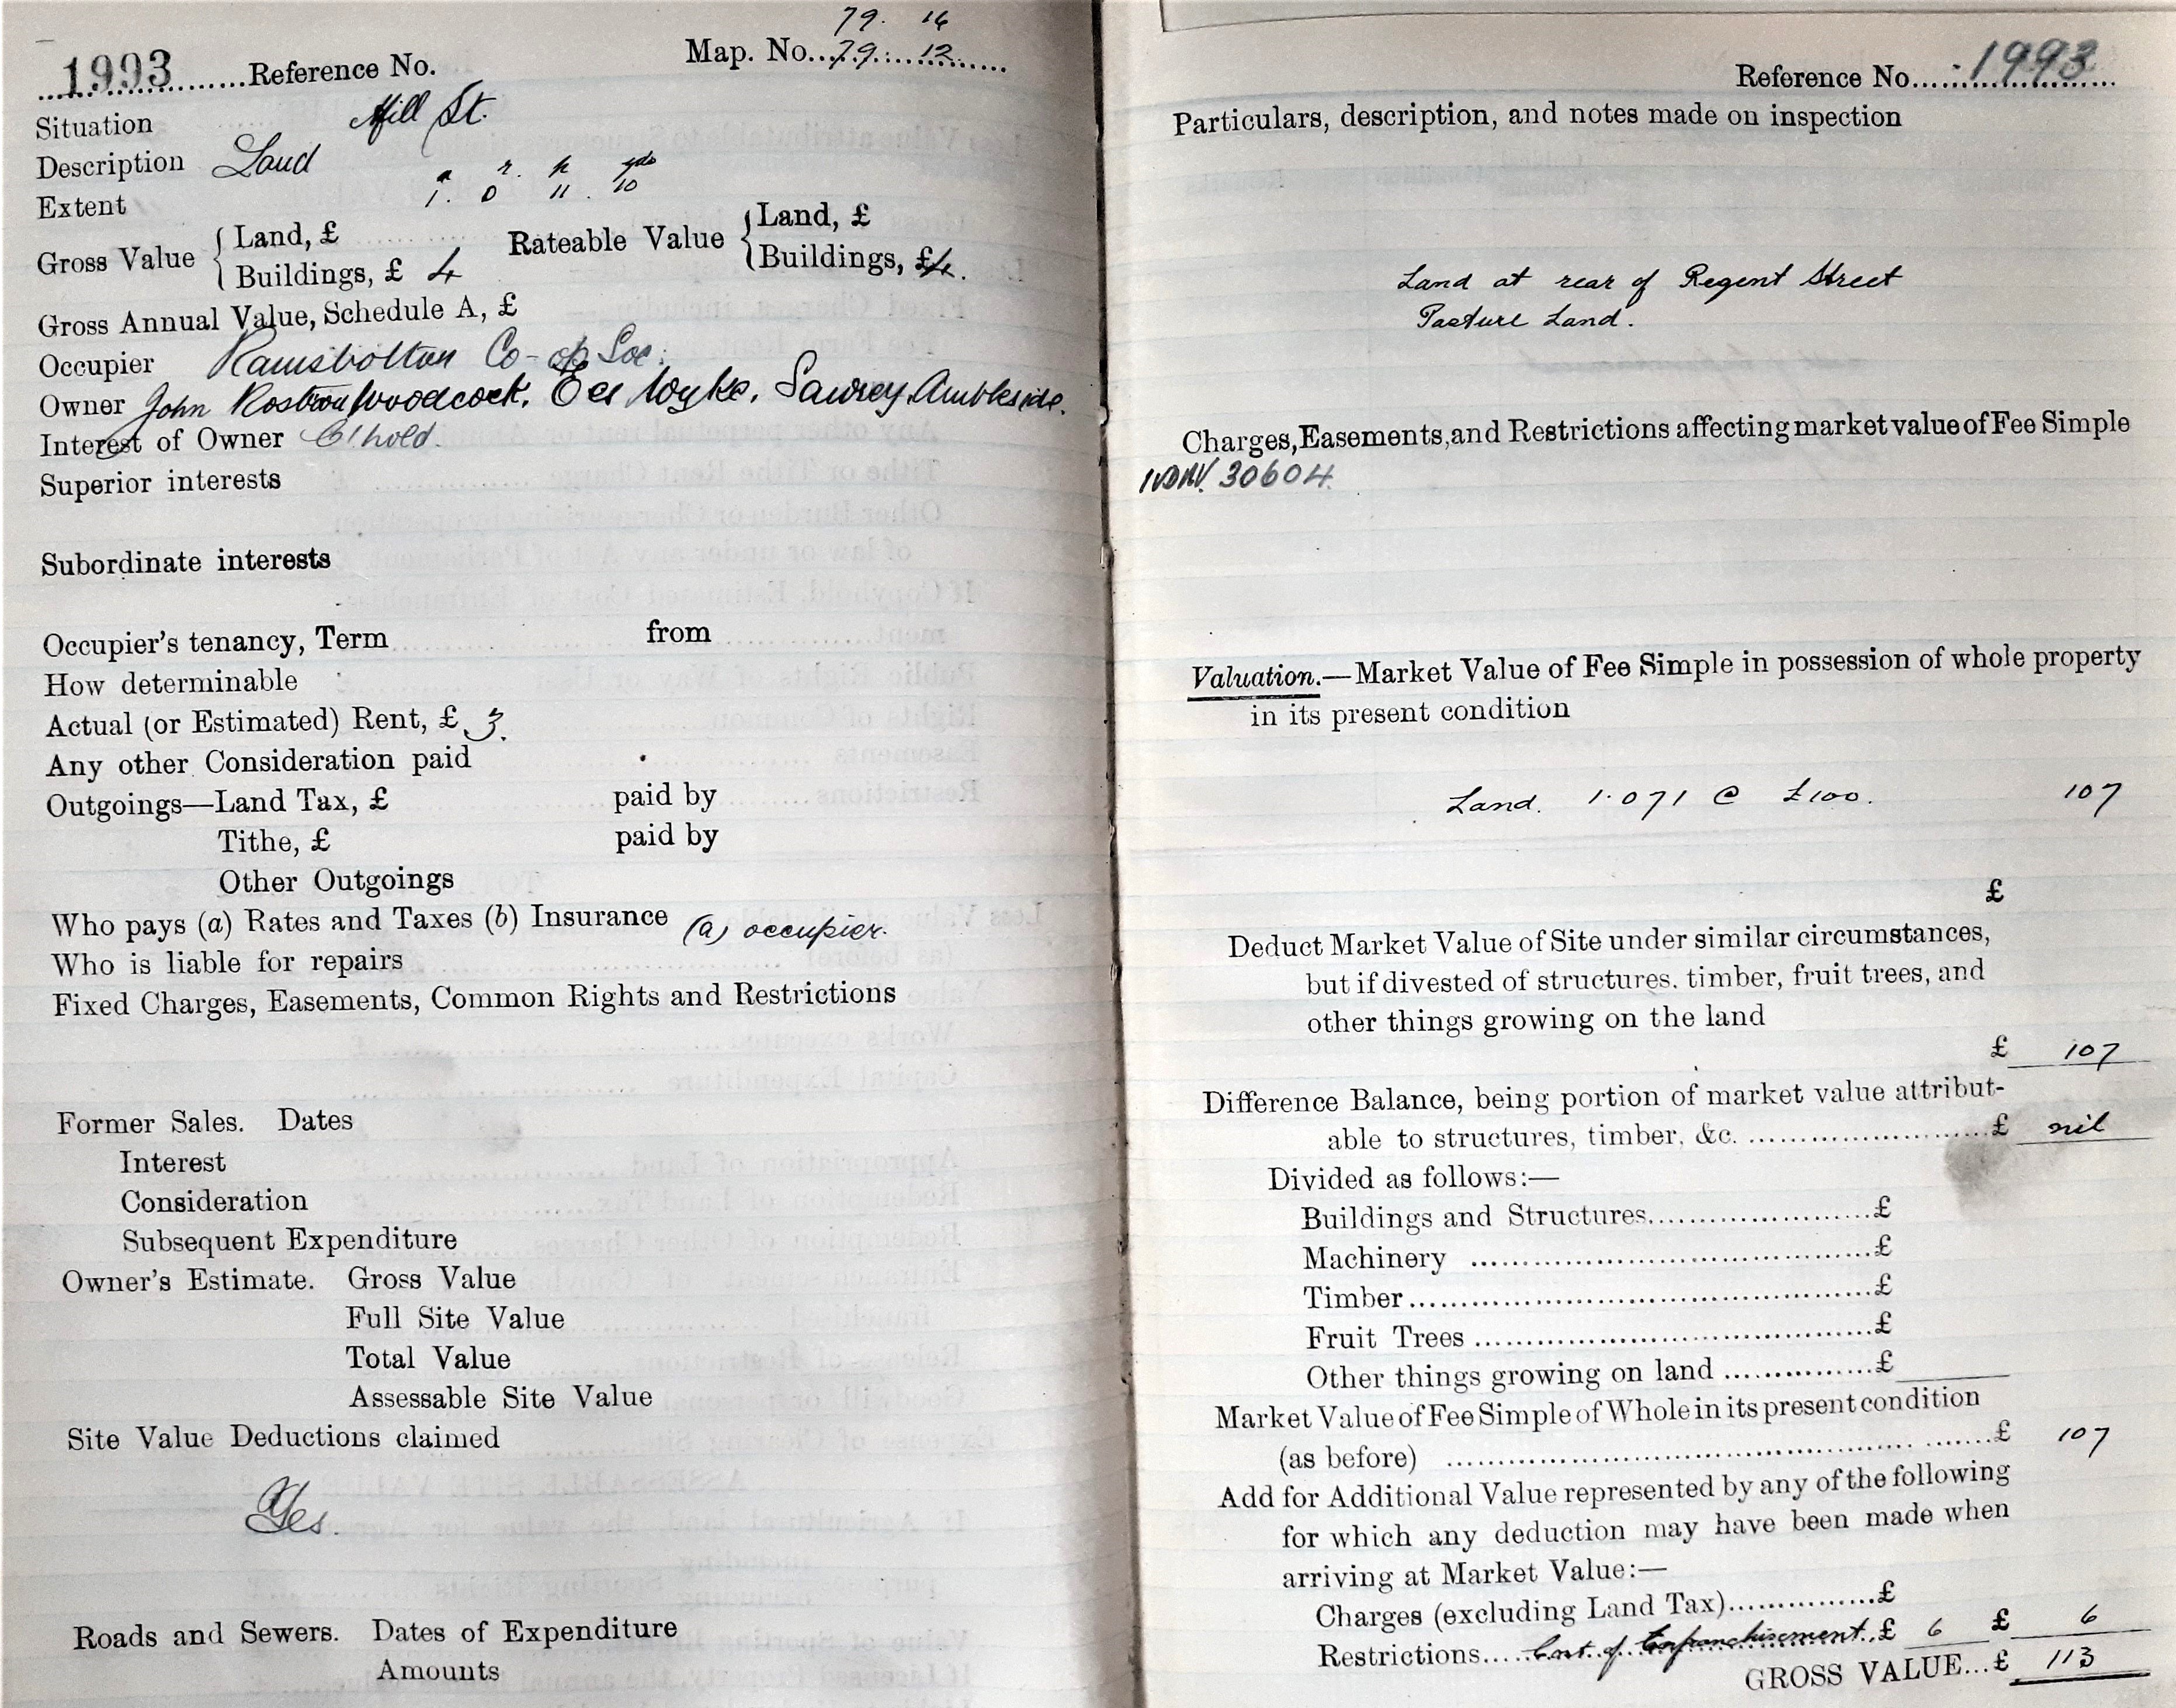 79. 14
1993 Reference No. Map. No. 79. 12
Situation Mill St.
Description Land
a r. p yds
Extent 1. 0 11. 10
Gross Value { Land, £ Rateable Value { Land, £
Buildings, £ 4 Buildings, £4.
Gross Annual Value, Schedule A, £
Occupier Ramsbottom Co-op Soc.
Owner John Rostron Woodcock, Ees Wyke, Sawrey, Ambleside.
Interest of Owner C'hold.
Superior interests
Subordinate interests
Occupier's tenancy, Term from
How determinable
Actual (or Estimated) Rent, £ 3.
Any other Consideration paid
Outgoings—Land Tax, £ paid by
Tithe, £ paid by
Other Outgoings
Who pays (a) Rates and Taxes (b) Insurance (a) occupier.
Who is liable for repairs
Fixed Charges, Easements, Common Rights and Restrictions
Former Sales. Dates
Interest
Consideration
Subsequent Expenditure
Owner's Estimate. Gross Value
Full Site Value
Total Value
Assessable Site Value
Site Value Deductions claimed
Yes.
Roads and Sewers. Dates of Expenditure
Amounts
Reference No. 1993
Particulars, description, and notes made on inspection
Land at rear of Regent Street
Pasture Land.
Charges, Easements, and Restrictions affecting market value of Fee Simple
30604
Valuation.—Market Value of Fee Simple in possession of whole property
in its present condition
Land. 1.071 @ £100. 107
£
Deduct Market Value of Site under similar circumstances,
but if divested of structures, timber, fruit trees, and
other things growing on the land
£ 107
Difference Balance, being portion of market value attribut-
able to structures, timber, &c. £ nil
Divided as follows:—
Buildings and Structures £
Machinery £
Timber £
Fruit Trees £
Other things growing on land £
Market Value of Fee Simple of Whole in its present condition
(as before) £ 107
Add for Additional Value represented by any of the following
for which any deduction may have been made when
arriving at Market Value:—
Charges (excluding Land Tax) £
Restrictions Cost of Enfranchisement £ 6 £ 6
GROSS VALUE...£ 113